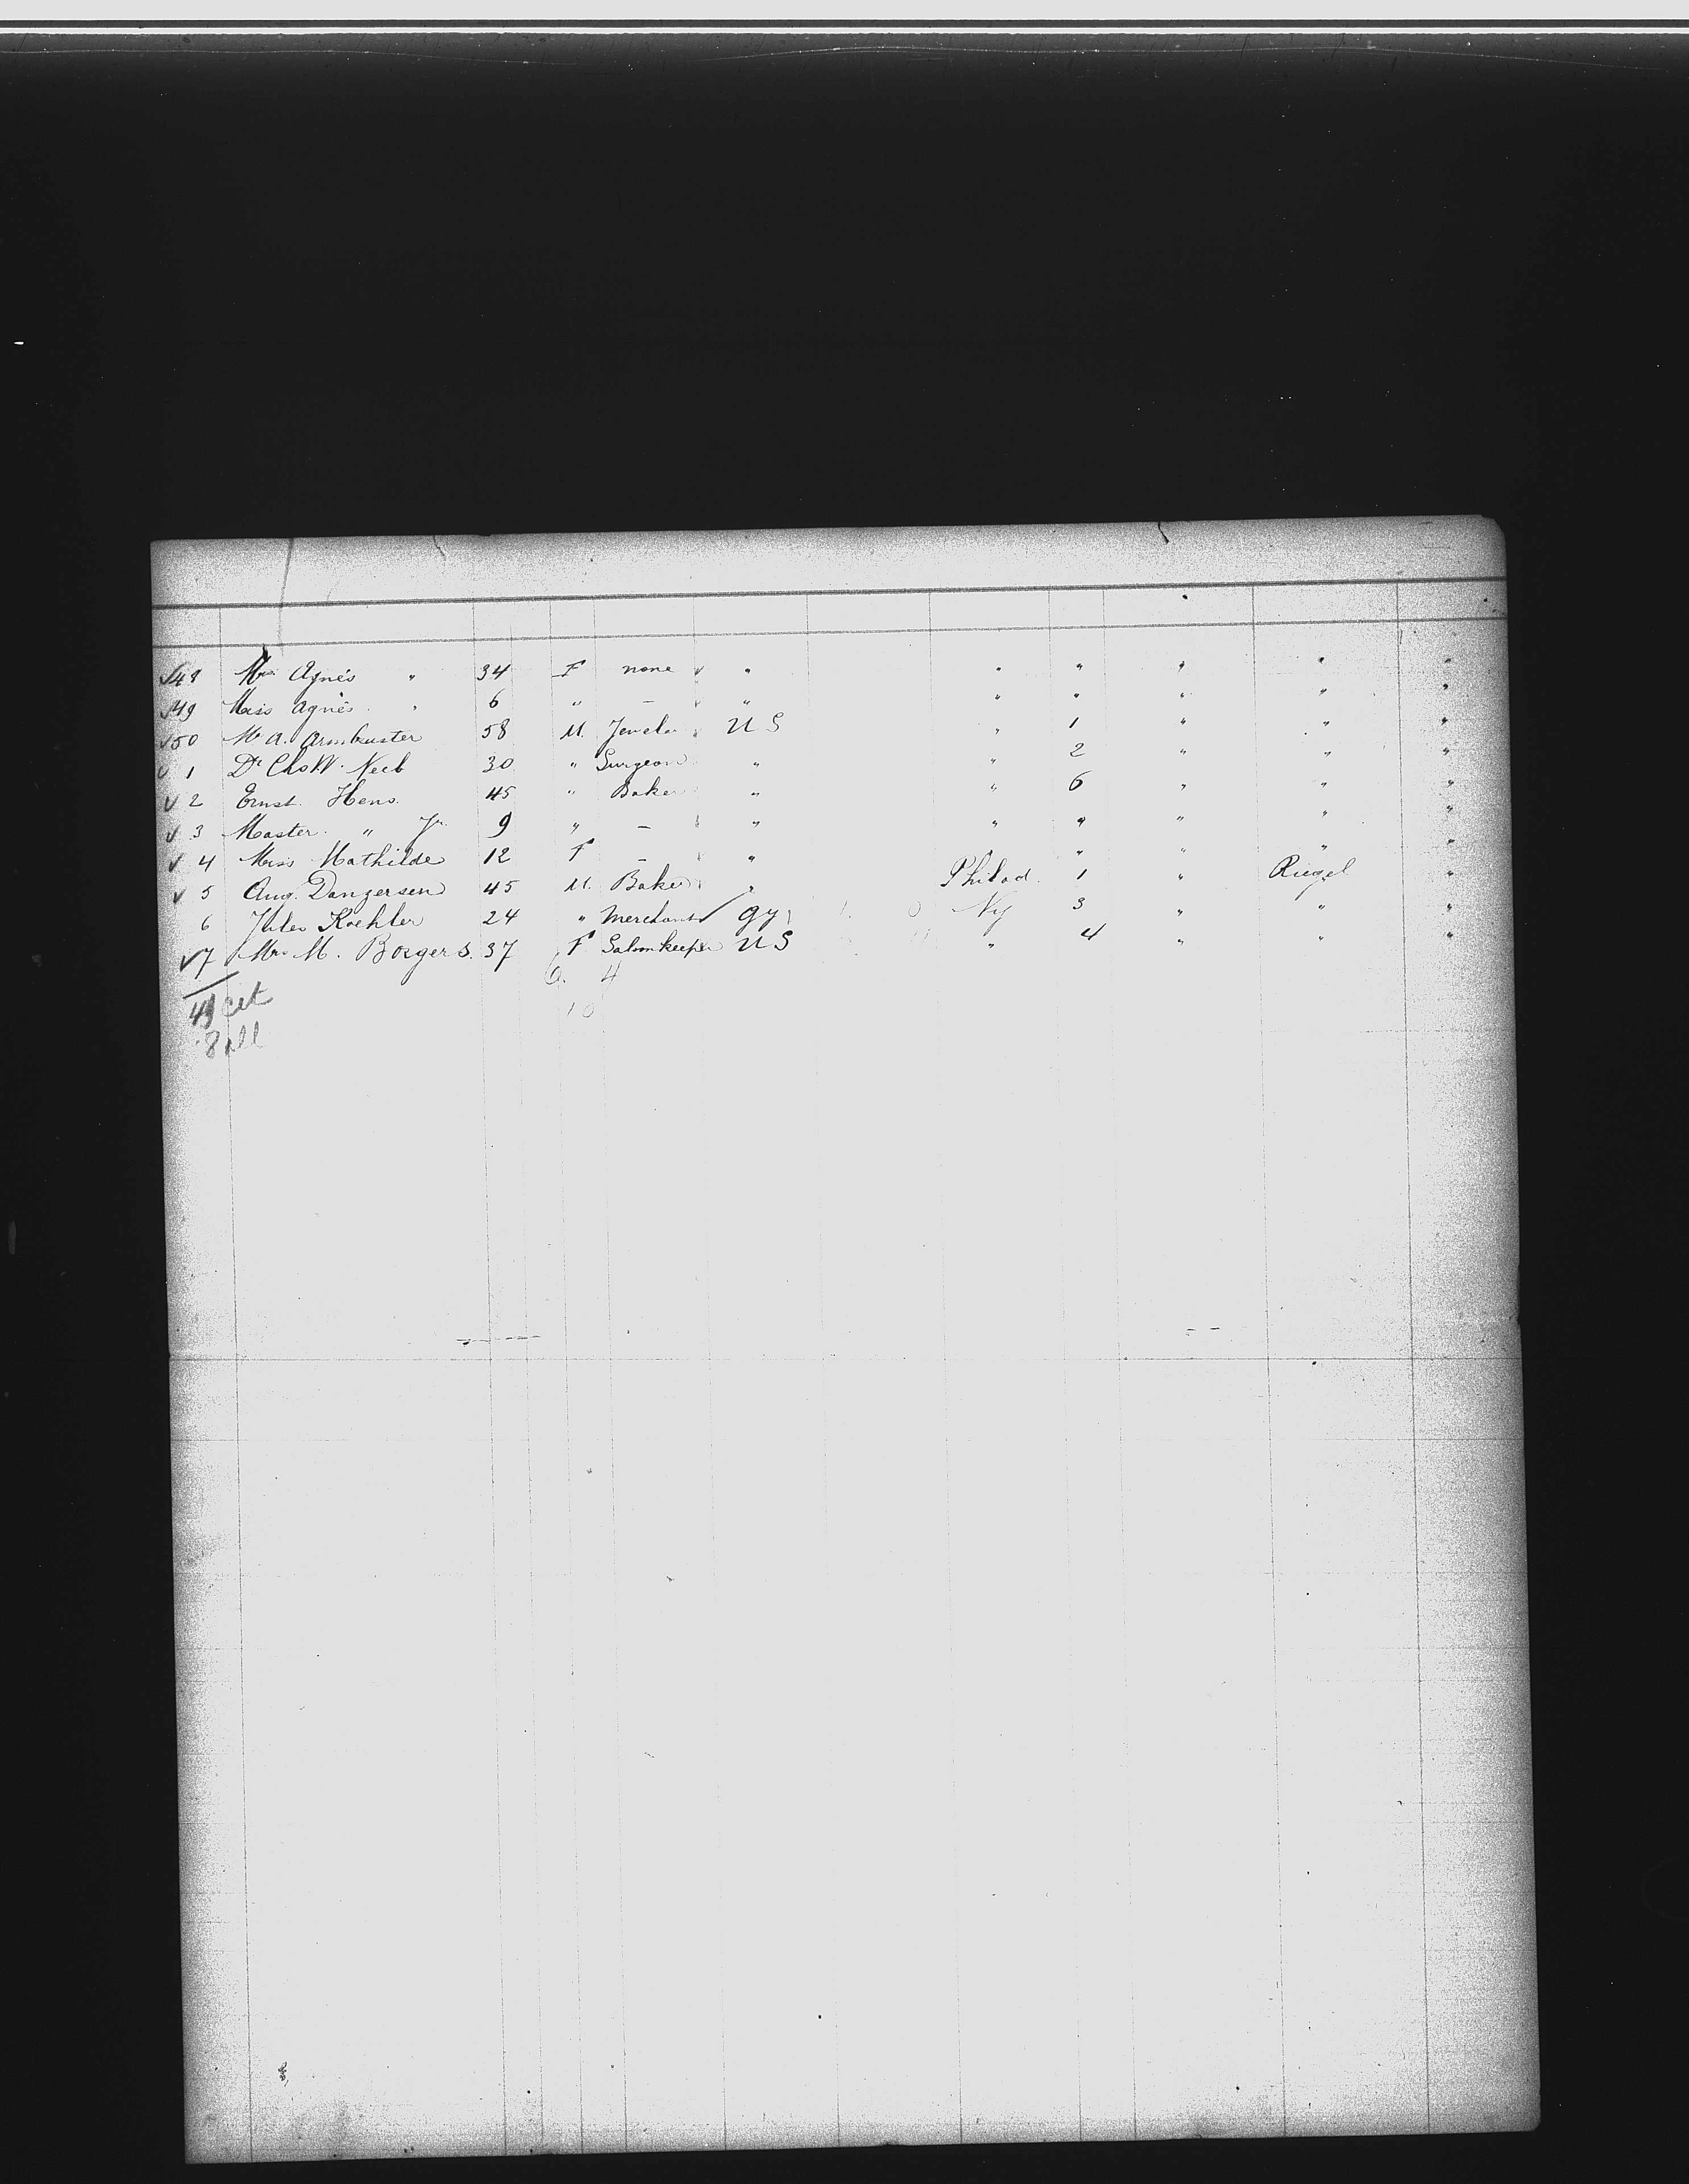 ✓48 Mrs Agnes " 34 F none " " " " " "
✓49 Miss Agnes " 6 " — " " " " " "
✓50 Mr A. Armbruster 58 M. Jeweler U S " 1 " " "
✓ 1 Dr Chs W. Neeb 30 " Surgeon " " 2 " " "
✓ 2 Ernst Hens 45 " Baker " " 6 " " "
✓ 3 Master " Jr. 9 " — " " " " " "
✓ 4 Miss Mathilde 12 F — " " " " "
✓ 5 Aug. Danzersen 45 M. Baker " Philad. 1 " Riegel "
6 Jules Koehler 24 " Merchant Gy Ny 3 " " "
✓7 Mrs M. Borgers. 37 F Saloonkeeper U S " 4 " " "
6. 4
49 cit 10
8 all